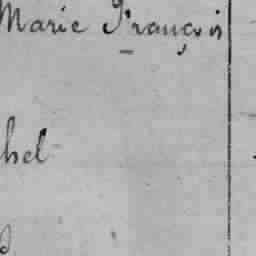 Marie François
hel